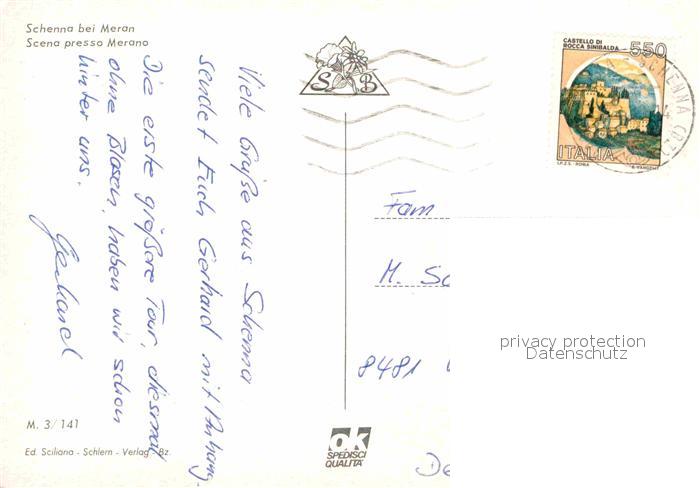 Schenna bei Meran
Scena presso Merano
Viele Grüße aus Schenna
sendet Euch Gerhard mit Anhang.
Die erste größere Tour, diesmal
ohne Blasen, haben wir schon
hinter uns.
Gerhard
M. 3/141
Ed. Sciliana - Schlern - Verlag Bz.
S B
CASTELLO DI
ROCCA SINIBALDA
550
ITALIA
I.P.Z.S. ROMA
SCHENNA
Fam
M. Sc
8481
privacy protection
Datenschutz
ok
SPEDISCI
QUALITÀ
De